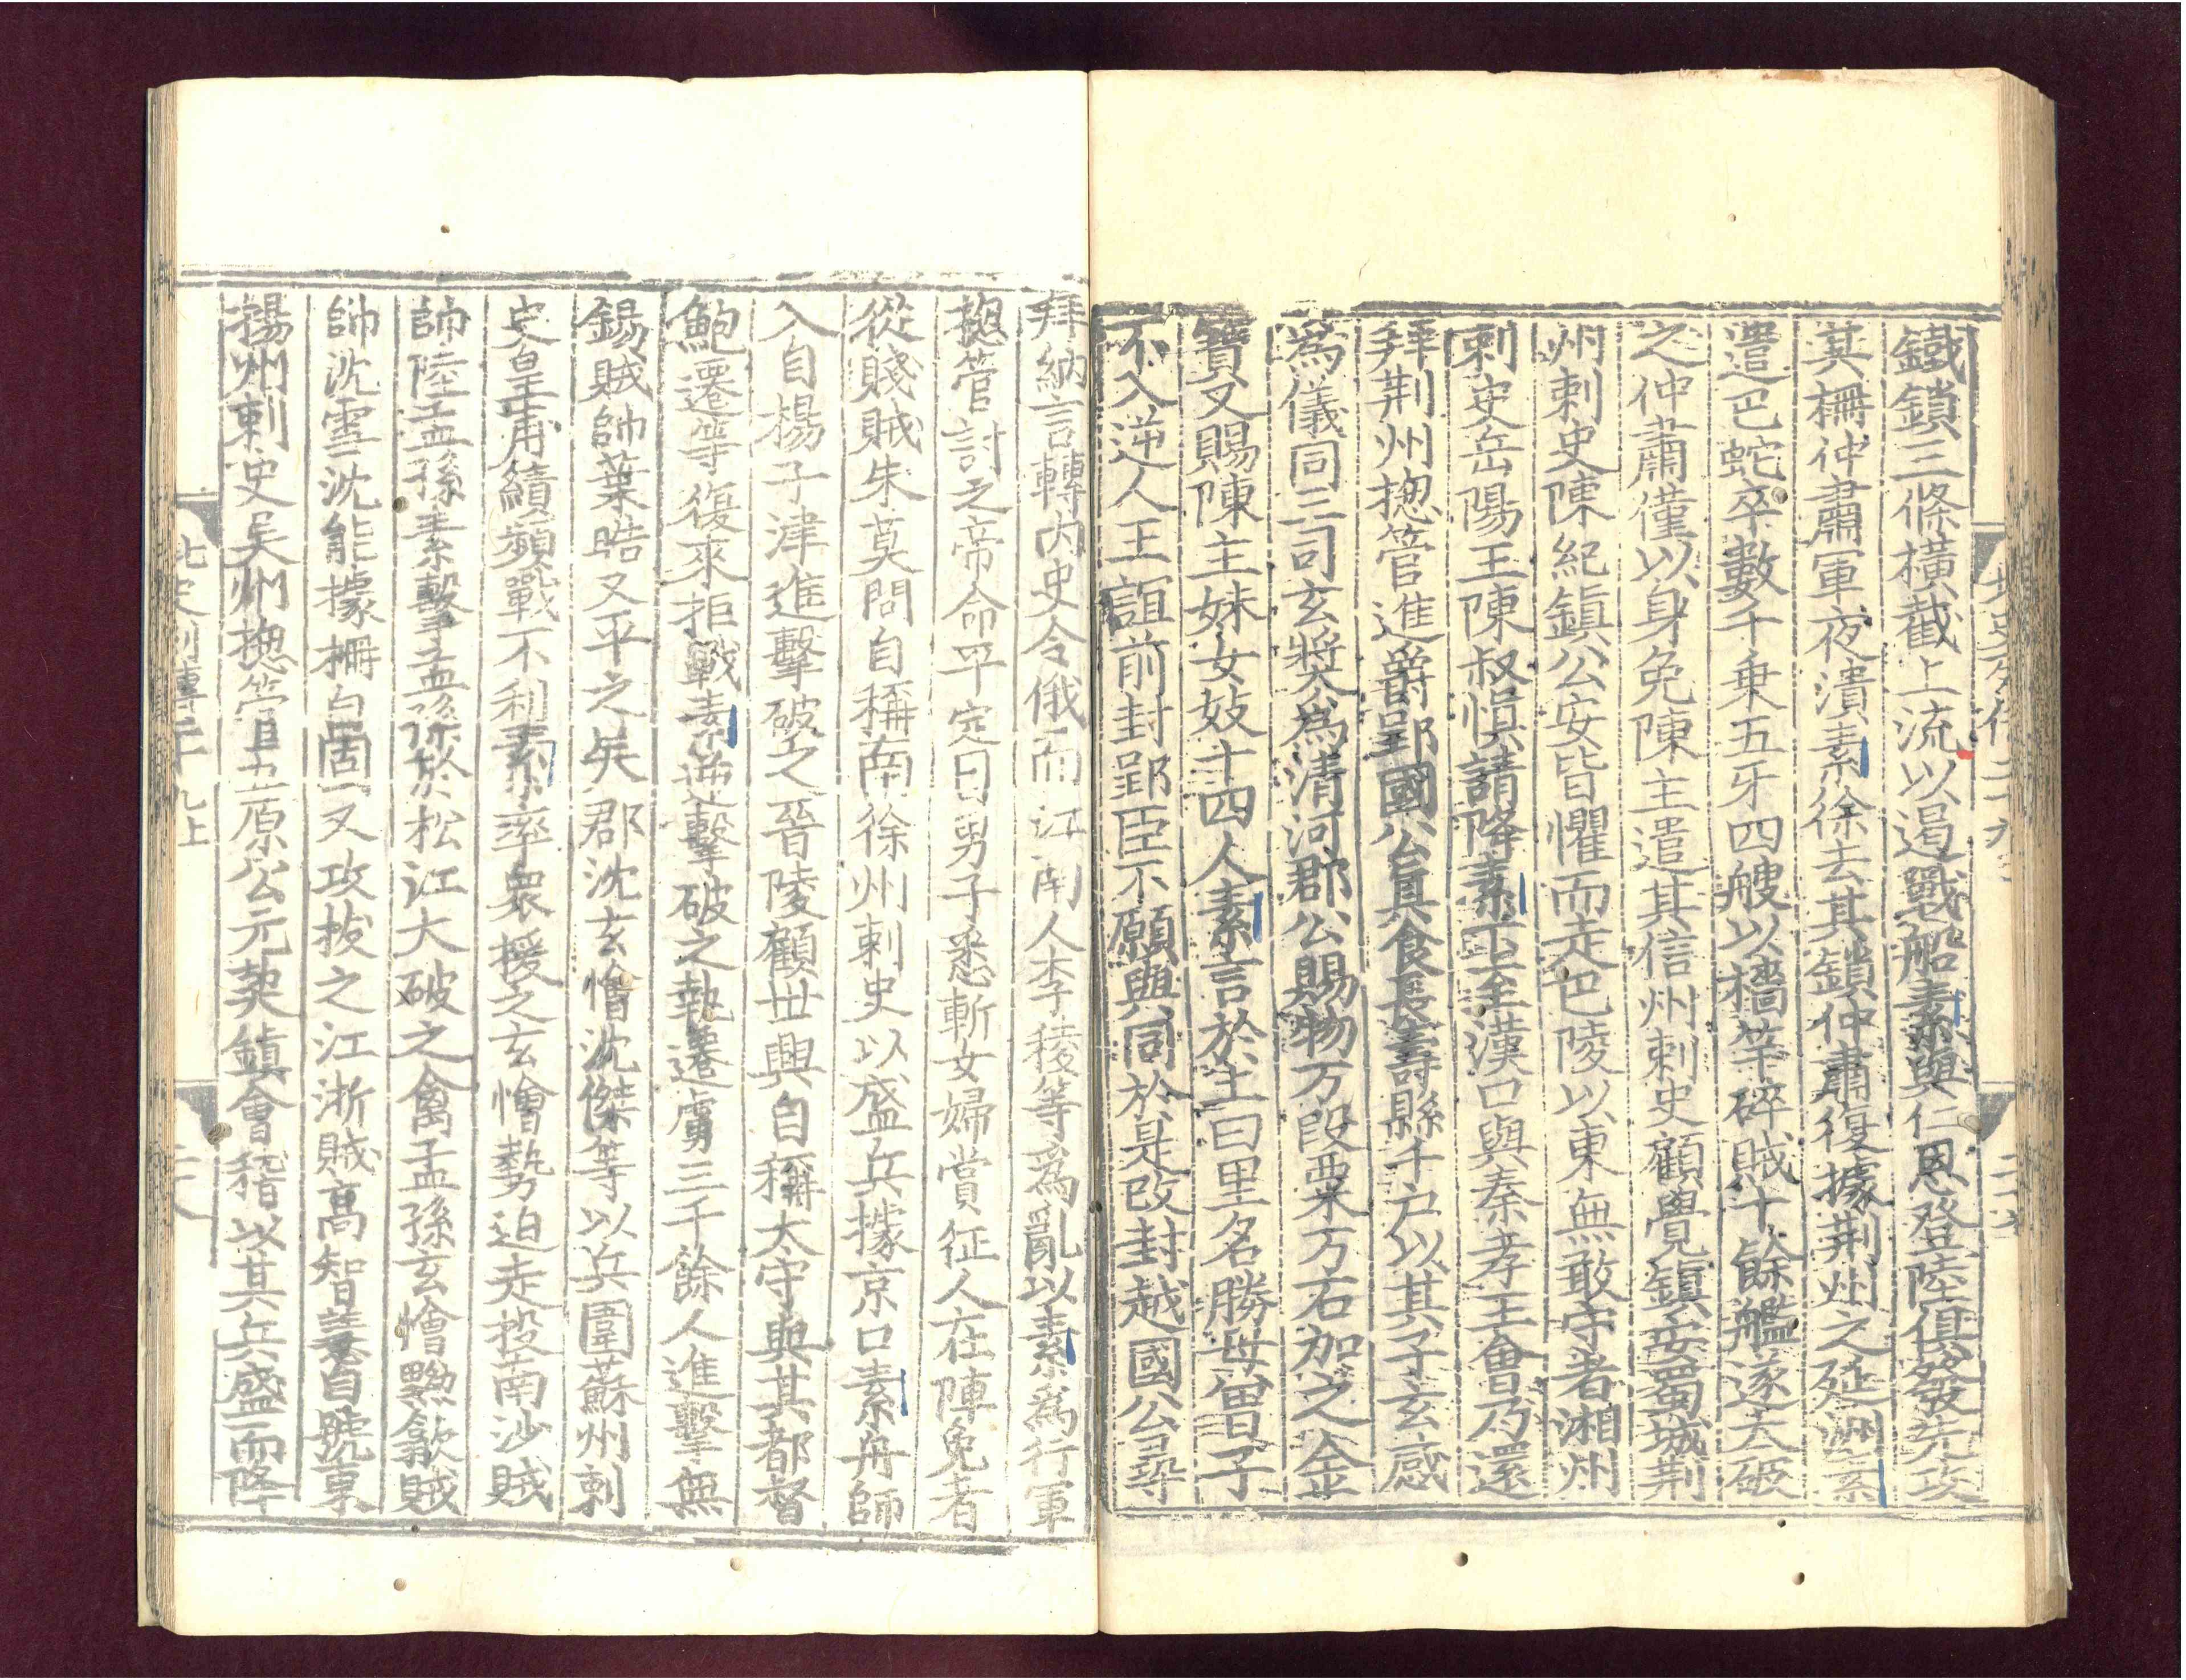 鐵鎖三條橫截上流以遏戰船素與仁恩登陸俱發先攻
其柵仲肅軍夜潰素徐去其鎖仲肅復據荆州之延洲素
遣巴蜑卒數千乗五牙四艘以檣竿碎賊十餘艦遂大破
之仲肅僅以身免陳主遣其信州刺史顧覺鎮安蜀城荆
州刺史陳紀鎮公安皆懼而走巴陵以東無敢守者湘州
刺史岳陽王陳叔慎請降素下至漢口與秦孝王會乃還
拜荆州摠管進爵郢國公真食長壽縣千户以其子玄感
爲儀同三司玄奬爲清河郡公賜物万段粟万石加之金
寶又賜陳主妹女妓十四人素言於上曰里名勝母曾子
不入逆人王誼前封郢臣不願與同於是改封越國公尋
拜納言轉内史令俄而江南人李稜等爲亂以素爲行軍
摠管討之帝命平定日男子悉斬女婦賞征人在陣免者
從賤賊朱莫問自稱南徐州刺史以盛兵據京口素舟師
入自楊子津進擊破之晉陵顧世興自稱太守與其都督
鮑遷等復來拒戰素逆擊破之執遷虜三千餘人進擊無
錫賊帥葉晧又平之吳郡沈玄懀沈傑等以兵圍蘇州刺
史皇甫績頻戰不利素率衆援之玄懀勢迫走投南沙賊
帥陸孟孫素擊孟孫於松江大破之禽孟孫玄懀黝歙賊
帥沈雪沈能據柵自固又攻拔之江浙賊高智慧自號東
揚州刺史吴州摠管五原公元契鎮會稽以其兵盛而降
北史列傳二十九上
二十八